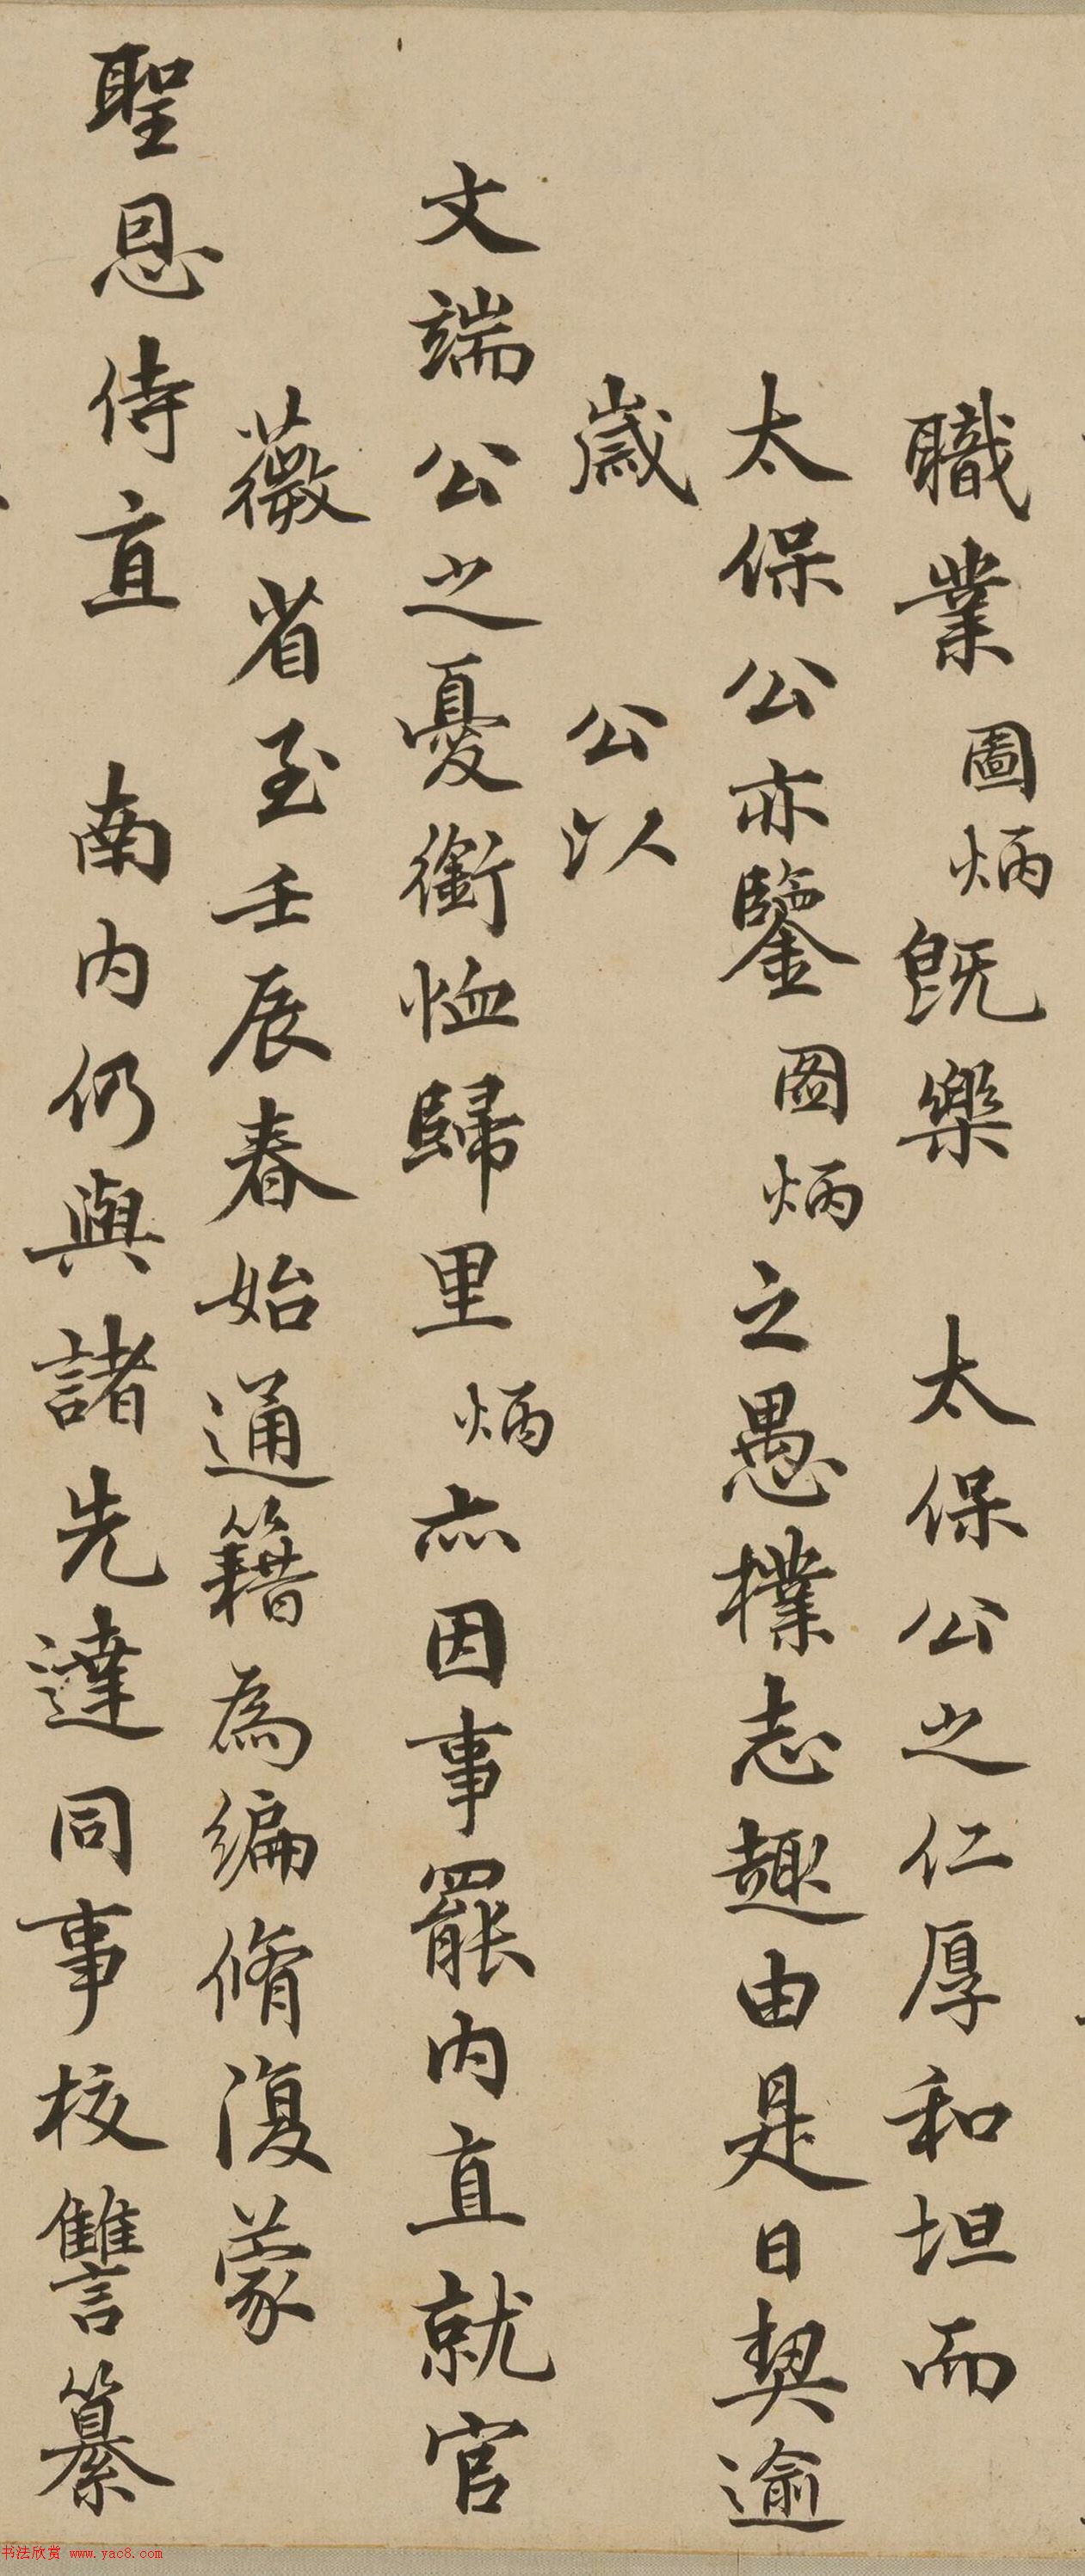 職業圖炳既樂 太保公之仁厚和坦而
太保公亦鑒圖炳之愚樸志趣由是日契逾
歲 公以
文端公之憂銜恤歸里炳亦因事罷內直就官
薇省至壬辰春始通籍為編脩復蒙
聖恩侍直 南內仍與諸先達同事校讐纂
书法欣赏 www.yac8.com